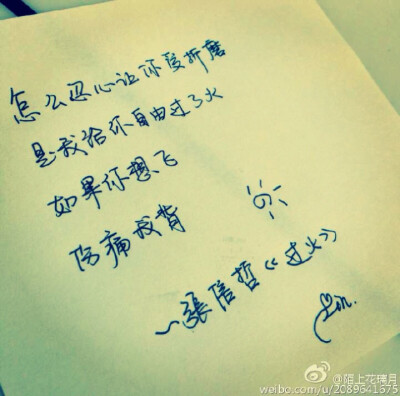 怎么忍心让你受折磨
是我给你自由过了火
如果你想飞
伤痛我背
～張信哲《过火》
@陌上花璃月
weibo.com/u/2089641675